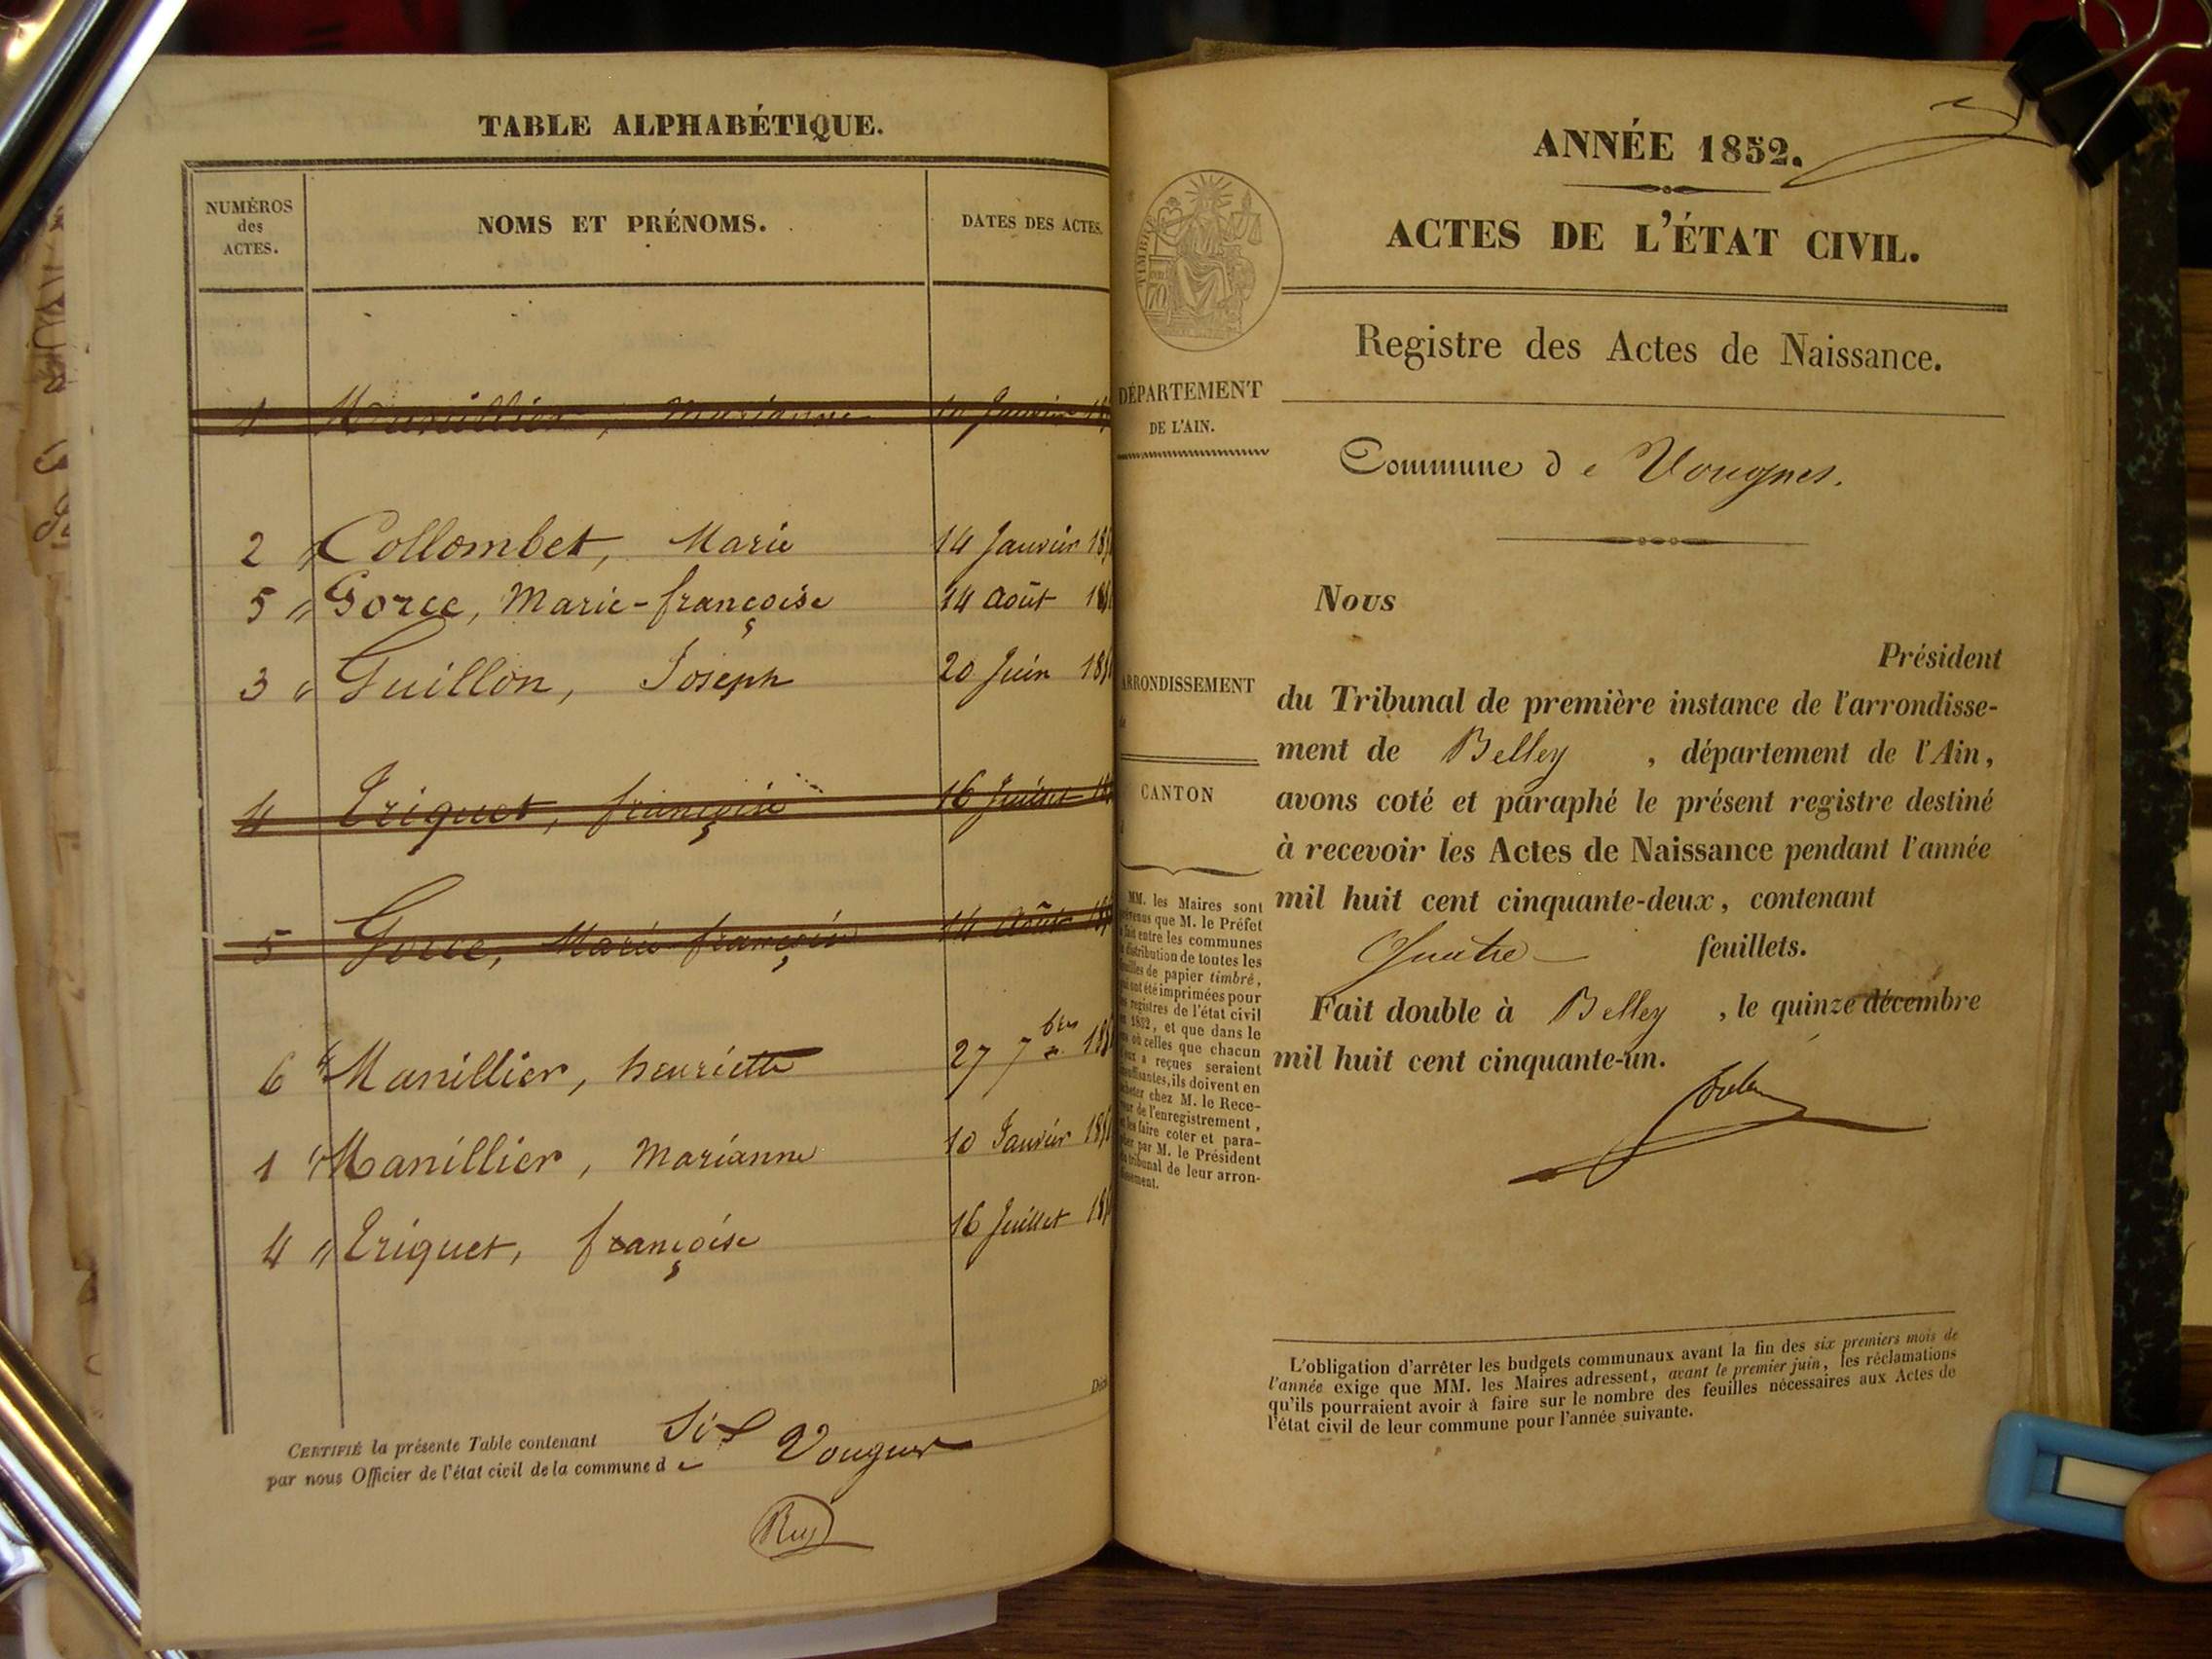 TABLE ALPHABÉTIQUE.
NUMÉROS
des
ACTES.
NOMS ET PRÉNOMS.
DATES DES ACTES.
1 Manillier, Marianne 10 Janvier
2 " Collombet, Marie 14 Janvier 18
5 " Gorce, Marie-françoise 14 Août 18
3 " Guillon, Joseph 20 Juin 18
4 Triquet, françoise 16 Juillet
5 Gorce, Marie françoise 14 Août
6 " Manillier, henriette 27 7bre 18
1 " Manillier, Marianne 10 Janvier 18
4 " Triquet, françoise 16 Juillet 18
CERTIFIÉ la présente Table contenant Six
par nous Officier de l'état civil de la commune de Vougnes
ANNÉE 1852.
ACTES DE L'ÉTAT CIVIL.
Registre des Actes de Naissance.
TIMBRE
DÉPARTEMENT
DE L'AIN.
Commune de Vougnes.
Nous
Président
du Tribunal de première instance de l'arrondisse-
ment de Belley, département de l'Ain,
avons coté et paraphé le présent registre destiné
à recevoir les Actes de Naissance pendant l'année
mil huit cent cinquante-deux, contenant
Quatre feuillets.
Fait double à Belley, le quinze décembre
mil huit cent cinquante-un.
ARRONDISSEMENT
CANTON
MM. les Maires sont
que M. le Préfet
fait entre les communes
distribution de toutes les
feuilles de papier timbré,
qui ont été imprimées pour
les registres de l'état civil
1852, et que dans le
où celles que chacun
a reçues seraient
insuffisantes, ils doivent en
acheter chez M. le Rece-
veur de l'enregistrement,
les faire coter et para-
pher par M. le Président
tribunal de leur arron-
dissement.
L'obligation d'arrêter les budgets communaux avant la fin des six premiers mois de
l'année exige que MM. les Maires adressent, avant le premier juin, les réclamations
qu'ils pourraient avoir à faire sur le nombre des feuilles nécessaires aux Actes de
l'état civil de leur commune pour l'année suivante.